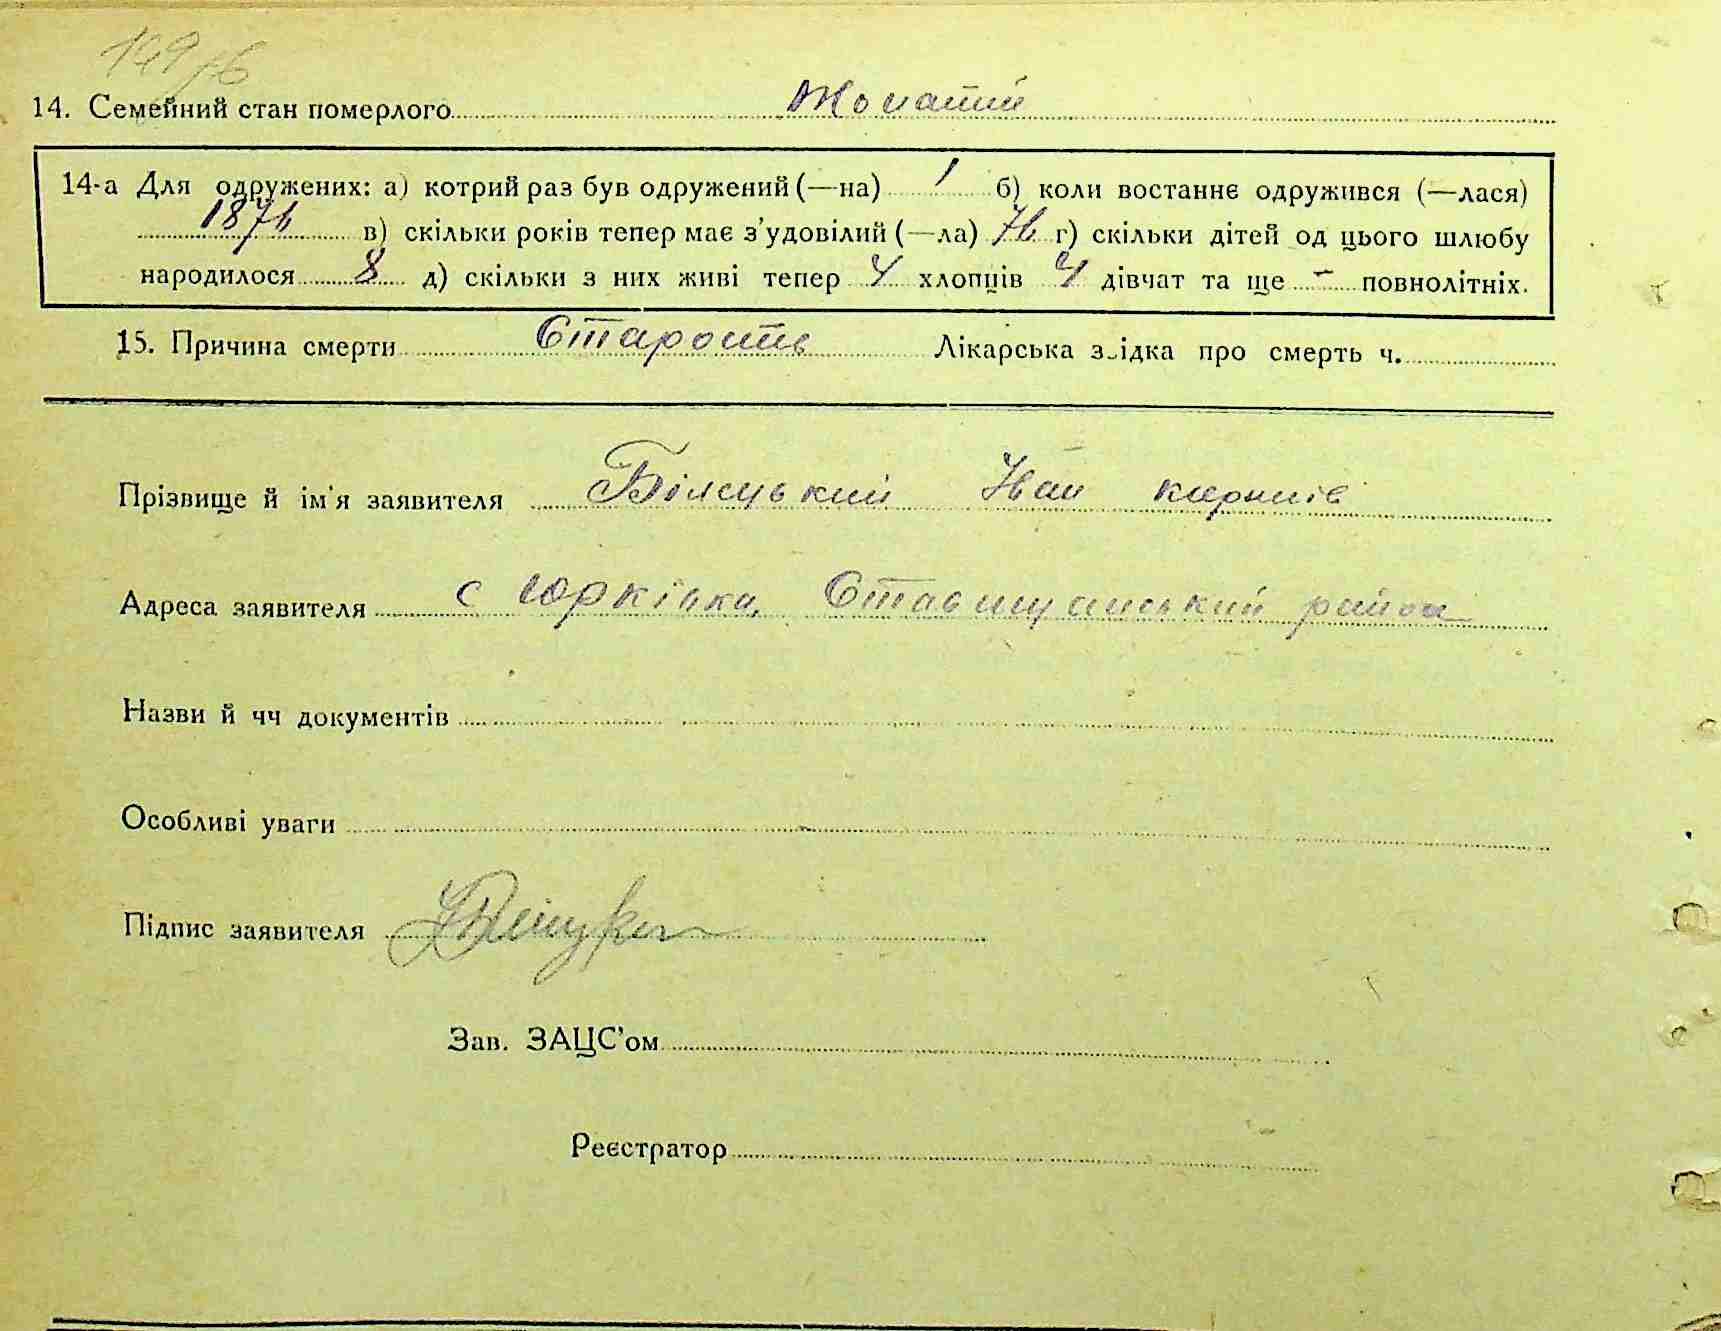 149 зв
14. Семейний стан померлого Жонатий
14-а Для одружених: а) котрий раз був одружений (—на) 1 б) коли востаннє одружився (—лася)
187 в) скільки років тепер має з'удовілий (—ла) г) скільки дітей од цього шлюбу
народилося 8 д) скільки з них живі тепер 4 хлопців 4 дівчат та ще - повнолітніх.
15. Причина смерти Старость Лікарська з-ідка про смерть ч.
Прізвище й ім'я заявителя Білецький Іван
Адреса заявителя с Юрківка, Ставищанський район
Назви й чч документів
Особливі уваги
Підпис заявителя
Зав. ЗАЦС'ом
Реєстратор